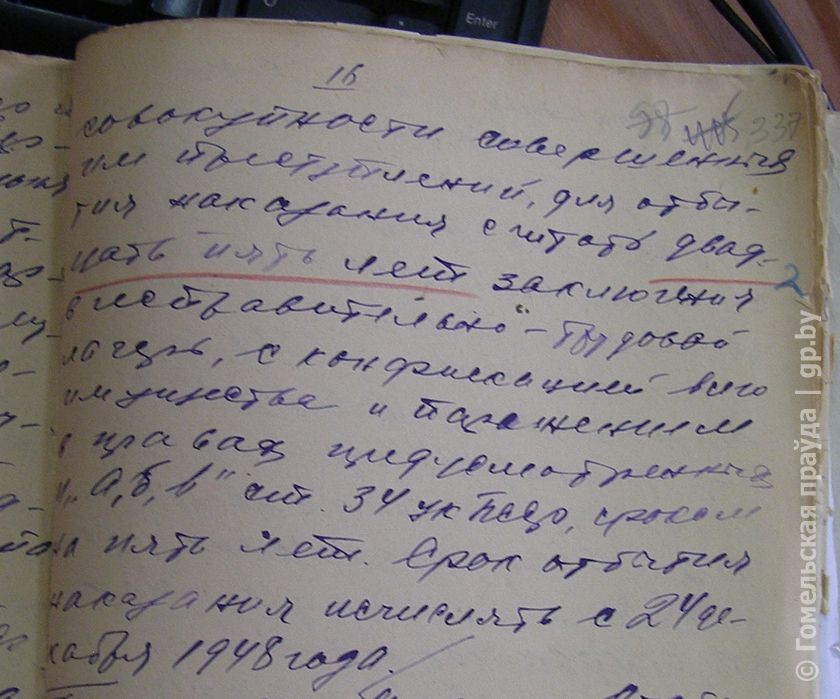 Enter
16
337
совокупности совершенных
им преступлений, для отбы-
тия наказания считать двад-
цать пять лет заключения 2
в исправительно-трудовой
лагерь, с конфискацией всего
имущества и поражением
в правах предусмотренных
п. „А, Б, В" ст. 34 УК БССР, сроком
на пять лет. Срок отбытия
наказания исчислять с 24 де-
кабря 1948 года.
© Гомельская праўда | gp.by